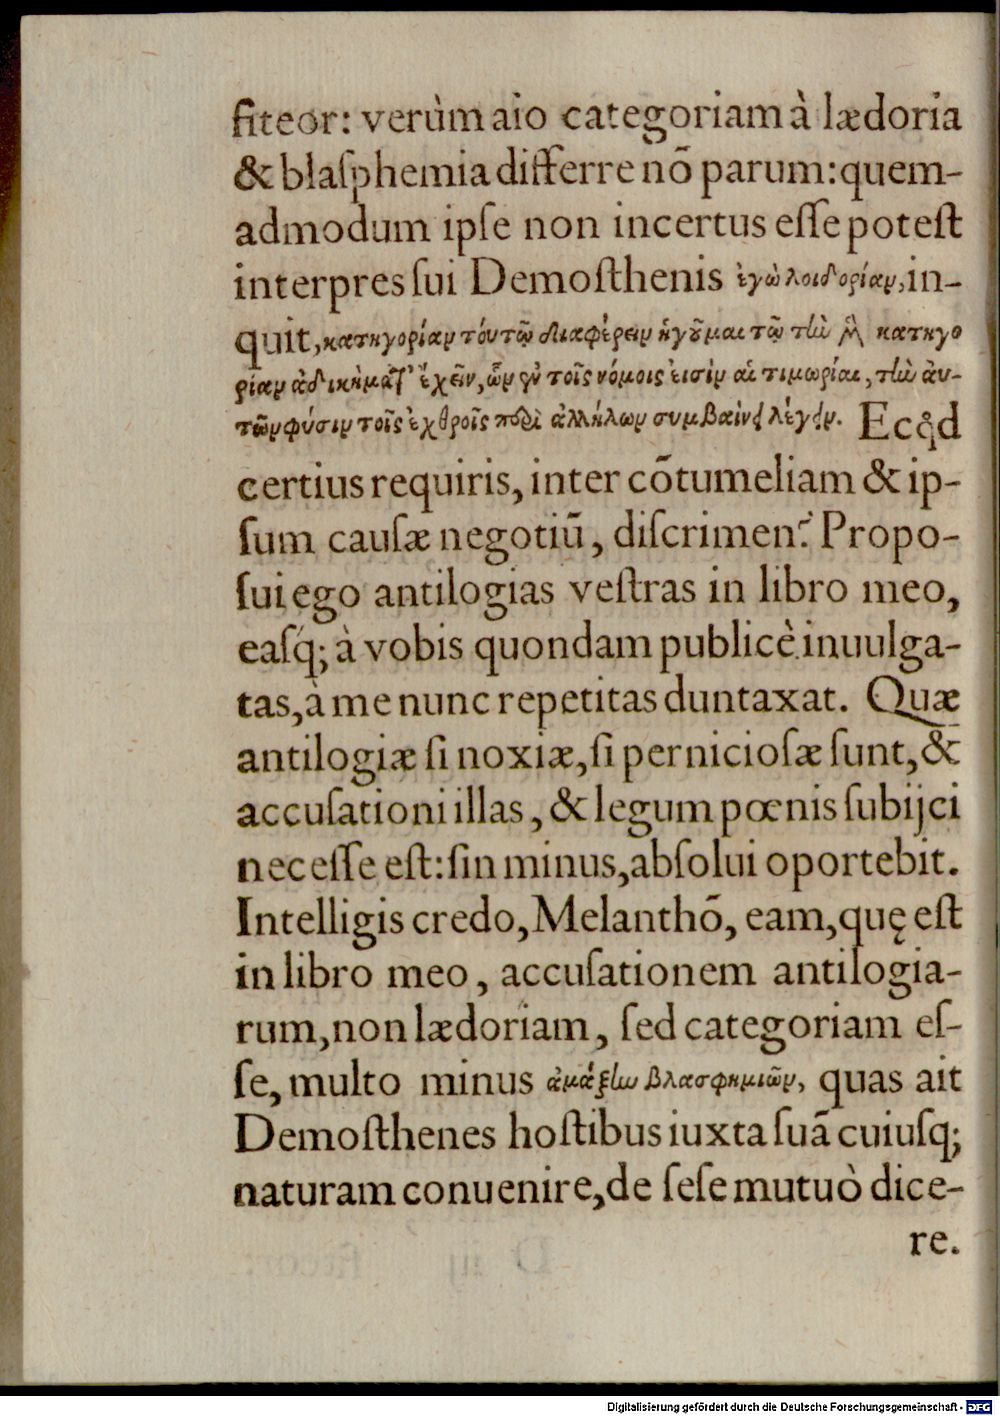 fiteor: verùm aio categoriam à lædoria
& blaſphemia differre nõ parum: quem-
admodum ipſe non incertus eſſe poteſt
interpres ſui Demoſthenis ἐγὼ λοιδορίαν, in-
quit, κατηγορίαν τούτῳ διαφέρειν ἡγοῦμαι τῷ τὴν μὲν κατηγο
ρίαν ἀδικήματ' ἔχειν, ὧν ἐν τοῖς νόμοις εἰσὶν αἱ τιμωρίαι, τὴν ἀυ-
τῶν φύσιν τοῖς ἐχθροῖς περὶ ἀλλήλων συμβαίνει λέγειν. Ecqd
certius requiris, inter cõtumeliam & ip-
ſum cauſæ negotiũ, diſcrimen? Propo-
ſui ego antilogias veſtras in libro meo,
eaſq; à vobis quondam publicè inuulga-
tas, à me nunc repetitas duntaxat. Quæ
antilogiæ ſi noxiæ, ſi pernicioſæ ſunt, &
accuſationi illas, & legum pœnis ſubijci
neceſſe eſt: ſin minus, abſolui oportebit.
Intelligis credo, Melanthõ, eam, quę eſt
in libro meo, accuſationem antilogia-
rum, non lædoriam, ſed categoriam eſ-
ſe, multo minus ἁμάξην βλασφημιῶν, quas ait
Demoſthenes hoſtibus iuxta ſuã cuiuſq;
naturam conuenire, de ſeſe mutuò dice-
re.
Digitalisierung gefördert durch die Deutsche Forschungsgemeinschaft - DFG